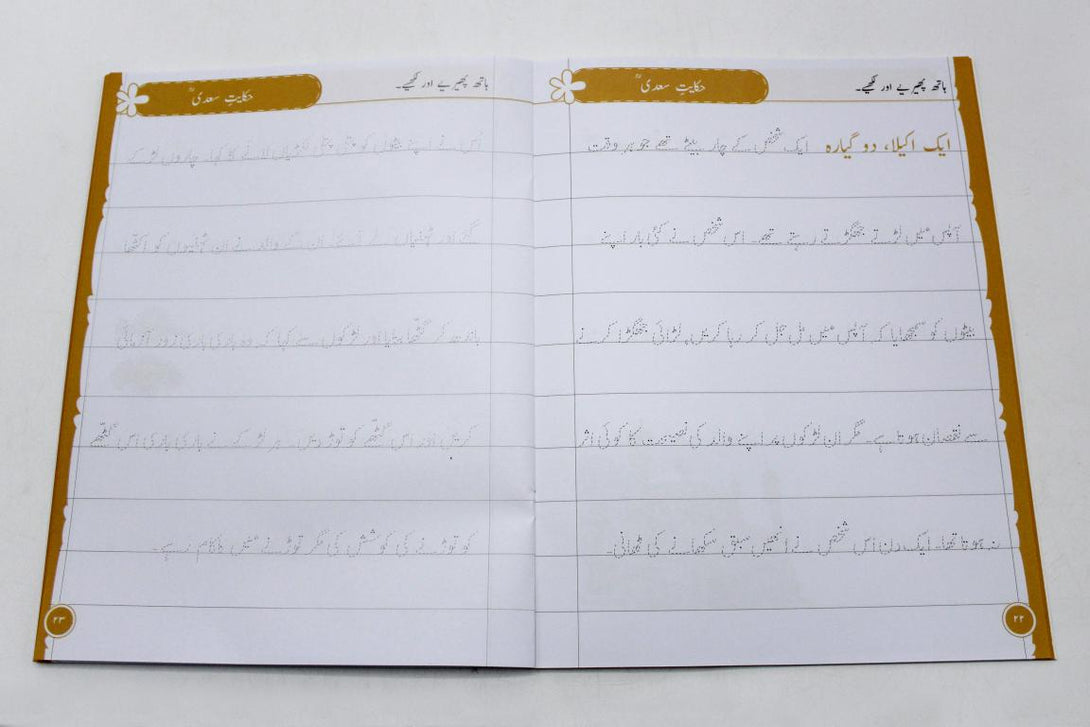 ہاتھ پھیریے اور لکھیے۔
حکایتِ سعدیؒ
ایک اکیلا، دو گیارہ ایک شخص کے چار بیٹے تھے جو ہر وقت
آپس میں لڑتے جھگڑتے رہتے تھے۔ اس شخص نے کئی بار اپنے
بیٹوں کو سمجھایا کہ آپس میں مل جل کر رہا کریں، لڑائی جھگڑا کرنے
سے نقصان ہوتا ہے۔ مگر ان لڑکوں پر اپنے والد کی نصیحت کا کوئی اثر
نہ ہوتا تھا۔ ایک دن اس شخص نے انھیں سبق سکھانے کی ٹھانی۔
۲۲
ہاتھ پھیریے اور لکھیے۔
حکایتِ سعدیؒ
اُس نے اپنے بیٹوں کو پتلی پتلی لانے کا کہا۔ چاروں لڑکے
گئے اور ٹہنیاں لے آئے۔ ان کے والد نے ان ٹہنیوں کو اکٹھا
باندھ کر گٹھا بنایا اور لڑکوں سے کہا کہ وہ باری باری زور آزمائی
کریں اور اس گٹھے کو توڑ دیں۔ ہر لڑکے نے باری باری اس گٹھے
کو توڑنے کی کوشش کی مگر توڑنے میں ناکام رہے۔
۲۳